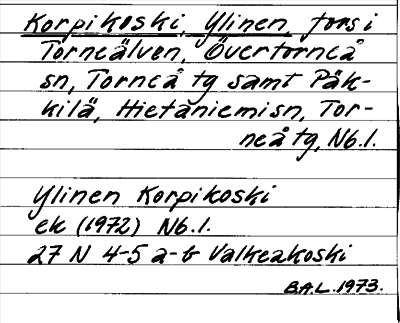 Korpikoski, Ylinen, fors i
Torneälven, Övertorneå
sn, Torneå tg samt Päk-
kilä, Hietaniemi sn, Tor-
neå tg, Nb. l.
Ylinen Korpikoski
ek (1972) Nb. l.
27 N 4-5 a-b Valkeakoski
B.A.L. 1973.